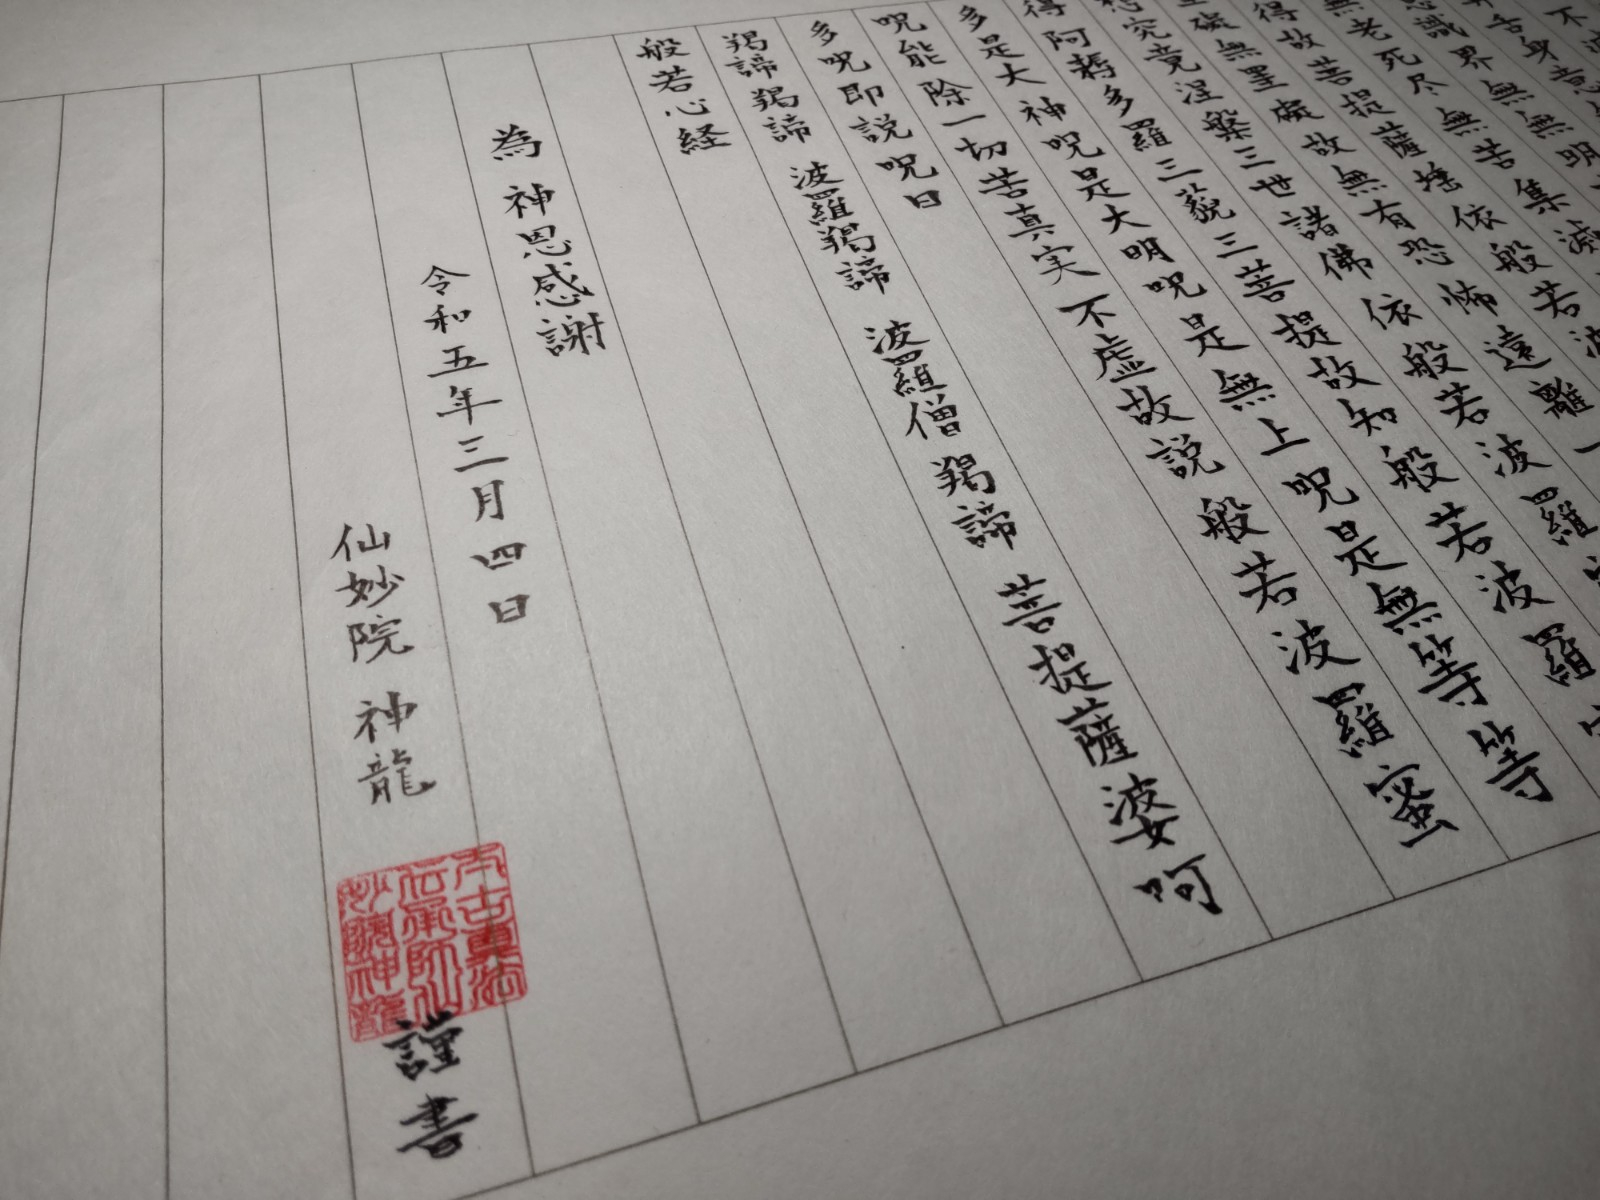 舌身意
識界無無明
無老死尽無苦集滅
得故菩提薩埵依般若波
罣礙無罣礙故無有恐怖遠離一
想究竟涅槃三世諸佛依般若波羅
得阿耨多羅三藐三菩提故知般若波羅
多是大神呪是大明呪是無上呪是無等等
呪能除一切苦真実不虚故説般若波羅蜜
多呪即説呪曰
羯諦羯諦 波羅羯諦 波羅僧羯諦 菩提薩婆呵
般若心経
為 神恩感謝
令和五年三月四日
仙妙院 神龍 謹書
太古真法
伝承師仙
妙院神龍